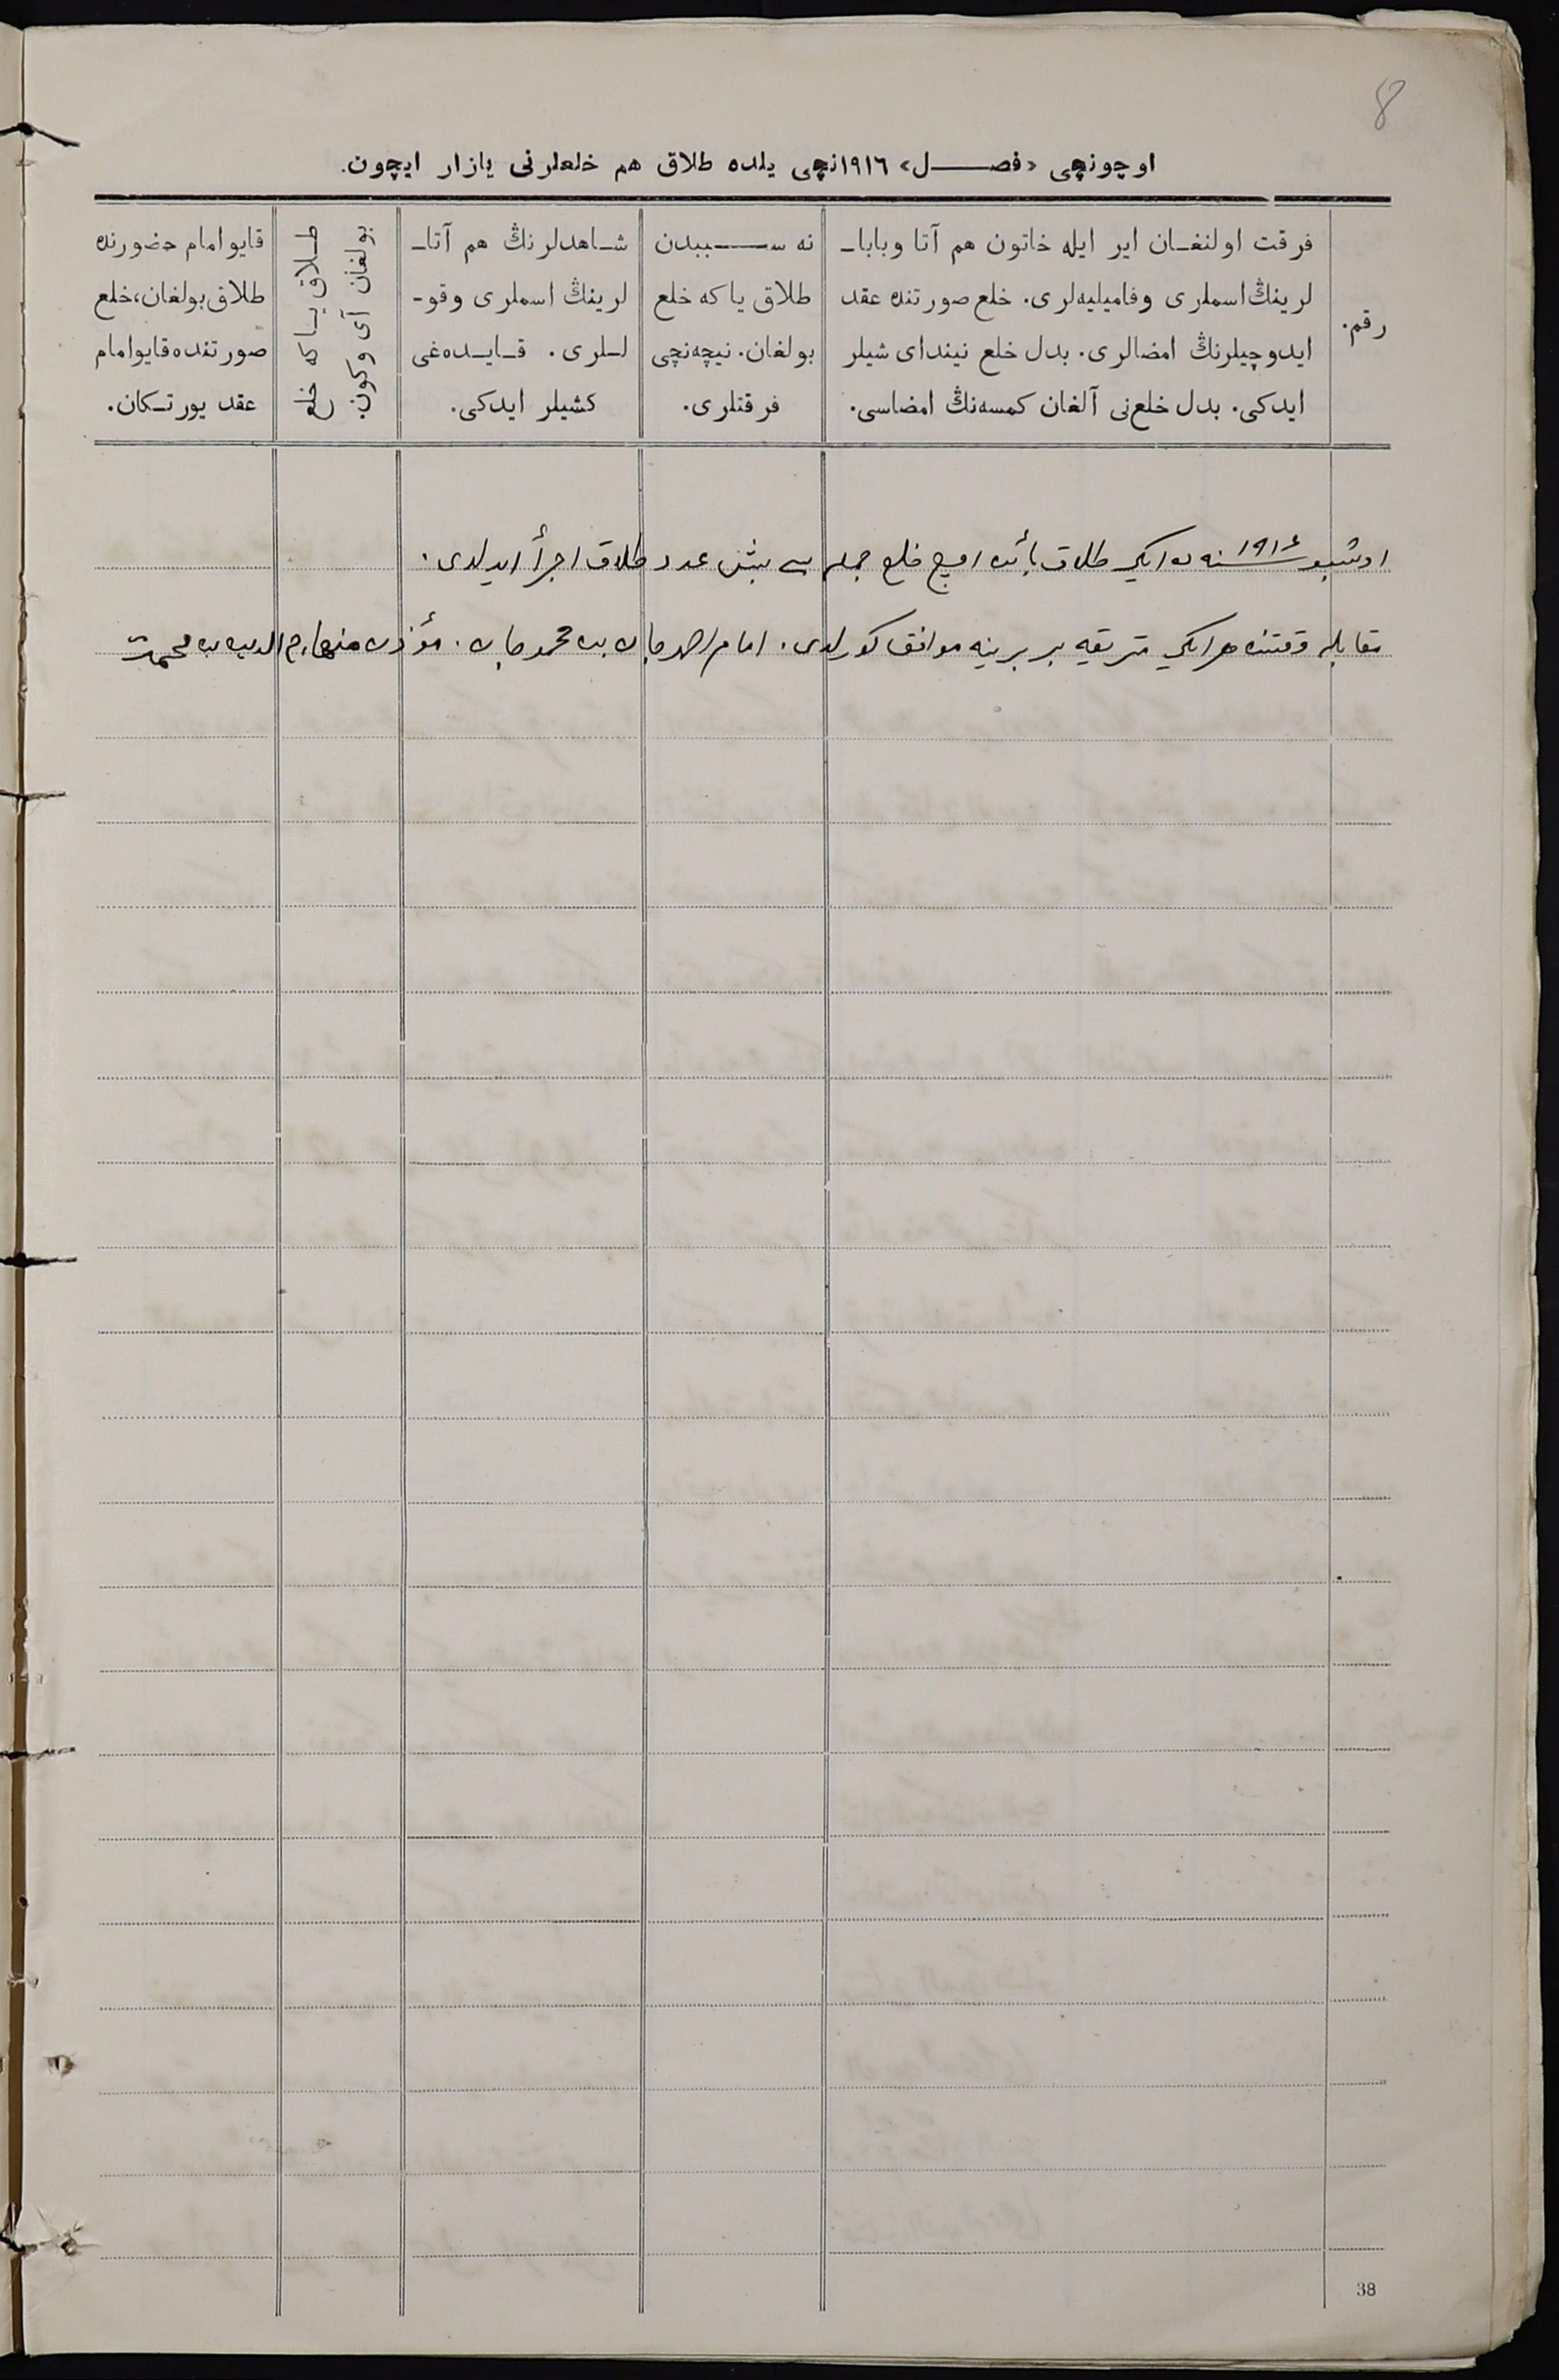 8
اوچونچی «فصل» ۱۹۱٦نچی یلده طلاق هم خلعلرنی یازار ایچون.
رقم.
فرقت اولنغان ایر ایله خاتون هم آتا وبابا-
لرینڭ اسملری وفامیلیه‌لری. خلع صورتنده عقد
ایدوچیلرنڭ امضالری. بدل خلع نیندای شیلر
ایدکی. بدل خلع‌نی آلغان کمسه‌نڭ امضاسی.
نه سببدن
طلاق یا که خلع
بولغان. نیچه‌نچی
فرقتلری.
شاهدلرنڭ هم آتا-
لرینڭ اسملری وقو-
للری. قایده‌غی
کشیلر ایدکی.
طلاق یا که خلع
بولغان آی وکون.
قایو امام حضورنده
طلاق بولغان، خلع
صورتنده قایو امام
عقد یورتکان.
اوشبو ۱۹۱٦ سنه ده ایکی طلاق بائن اوچ خلع جمله سی بیش عدد طلاق اجرأ ایدلدی.
مقابله وقتنده هر ایکی متریقه بر برینه موافق کورلدی. امام احمدجان بن محمدجان. مؤذن منهاج الدین بن محمد
38